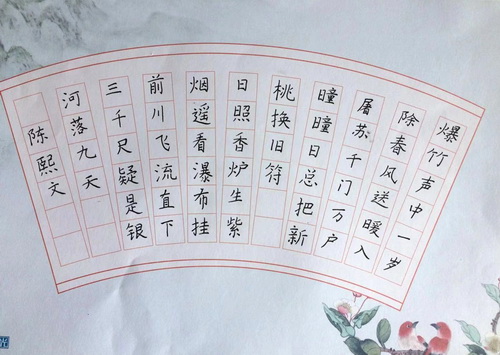 爆竹声中一岁
除春风送暖入
屠苏千门万户
瞳瞳日总把新
桃换旧符
日照香炉生紫
烟遥看瀑布挂
前川飞流直下
三千尺疑是银
河落九天
陈熙文